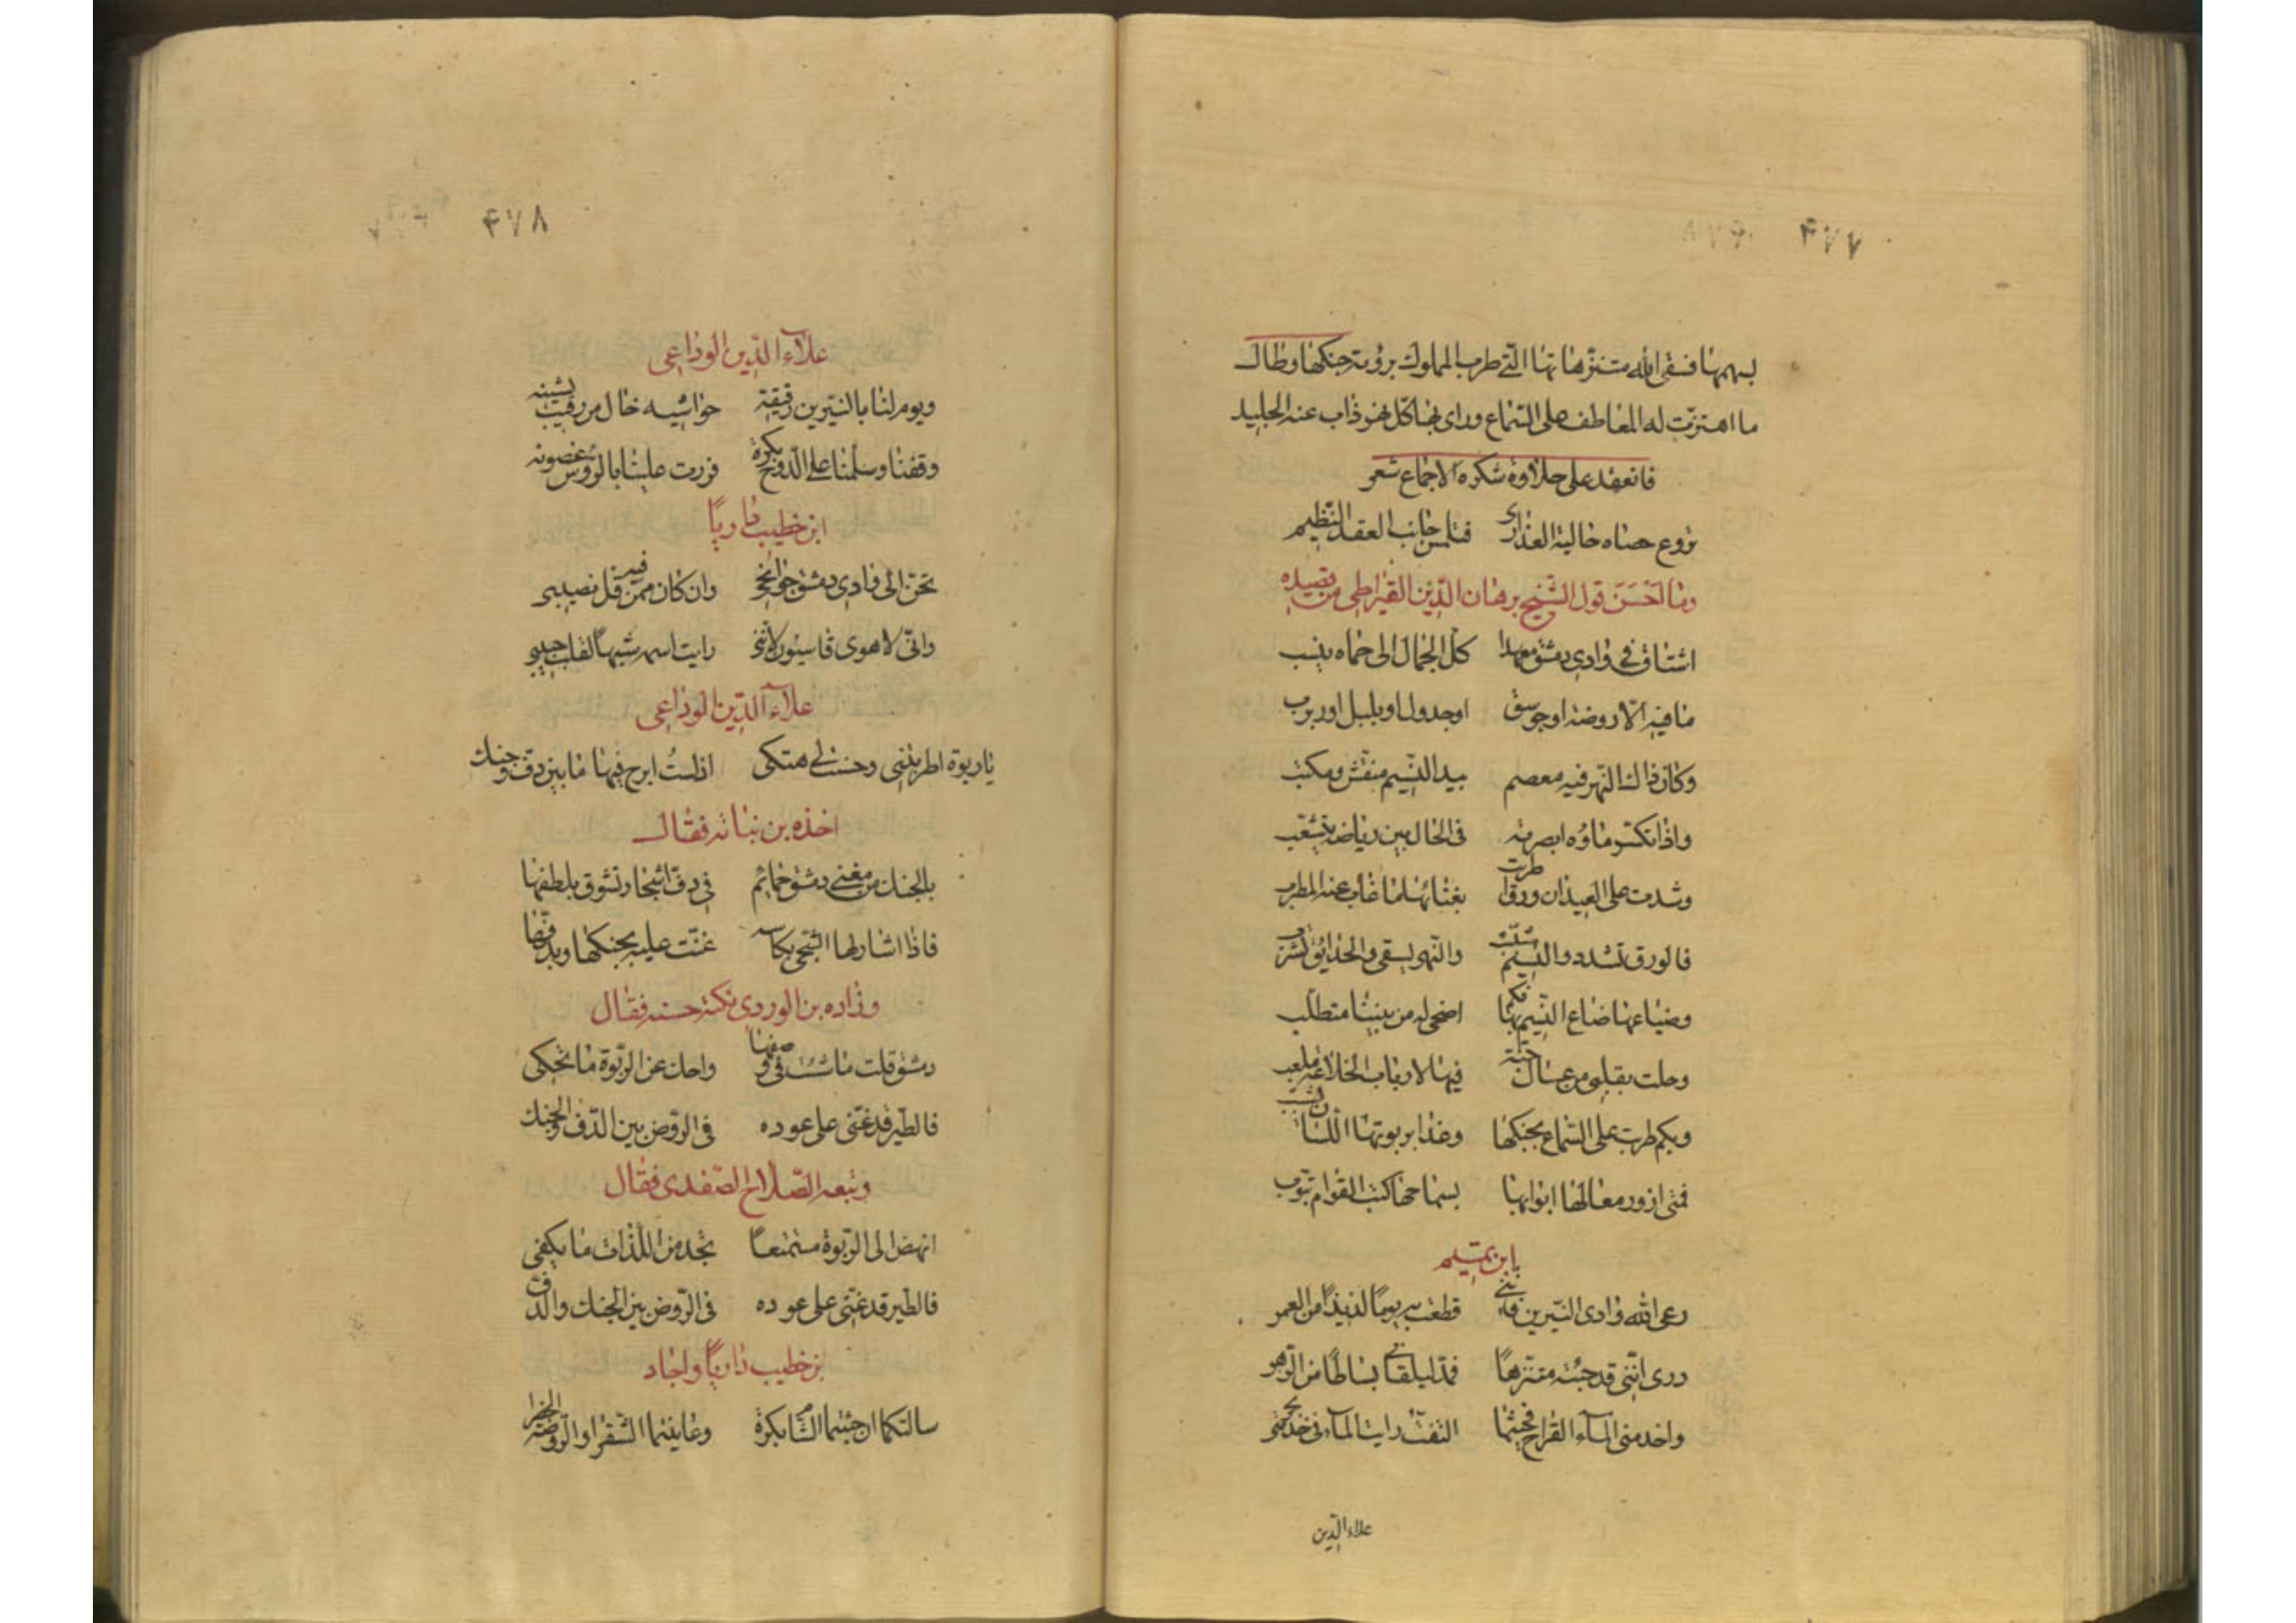 ۴۷۷
بسهمها فسقى الله متنزهاتها الّتي طرب المملوك برؤية جنكها وطال
ما اهتزّت له المعاطف على السّماع وراى بها كل نهر ذاب عنه الجليد
فانعقد على حلاوة شكره الاجماع شعر
تروع حصاه حالية العذارى فتلمس جانب العقد النّظيم
وما احسن قول الشّيخ برهان الدّين القيراطي من قصيده
اشتاق في وادى دمشق معهدا كلّ الجمال الى حماه ينسب
ما فيه الّا روضة او جوسق او جدول او بلبل او ربرب
وكان ذاك النّهر فيه معصم بيد النّسيم منقّش ومكتب
واذا تكسّر ماؤه ابصرته فى الحال بين رياضه يتشعّب
وشدت على العيدان ورق اطربت بغنائها لمّا غاب عنه المطرب
فالورق تشدو والنّسيم مشبّب والنّهر يسقي والحدايق تشرب
وضياعها ضاع النّسيم بها فكم اضحى له من بيننا متطلّب
وحلت بقلبي من عسال جنّة فيها لارباب الخلاعة ملعب
ولكم طربت على السّماع بجنكها وغدا بربوتها اللسان يشبّب
فمتى ازور معالمها ابوابها بسماحها كتب القوام تبوّب
يا ابن تميم
رعى الله وادى النّيربين فانّني قطعت به يوما لذيذا من العمر
درى انّني قد جئته متنزّها فمدّ ليلقاني بساطا من الزّهر
واخدمنى المآء القراح فحيثما التفتّ رايت المآء فى خدمتى يجرى
علاء الدّين
۴۷۸
علآء الدّين الوداعي
ويوم لنا بالنّيربين رقيقة حواشيه خال من رقيب يشينه
وقفنا وسلّمنا على الدّوح بكرة فردت علينا بالرؤس غصونه
ابن خطيب داريّا
تحنّ الى وادى دمشق جوانحى وان كان ممن قل فيه نصيبى
وانّى لاهوى قاسيون لانّنى رايت اسمه شبيها لقلب حبيبى
علآء الدّين الوداعي
يا ربوة اطربتني وحسنت لي هتكى اذ لستُ ابرح فيها ما بين دفّ وجنك
اخذه بن نباته فقال
بالجنك من مغنى دمشق حمائم فى دف اشجار تشوق بلطفها
فاذا اشار لها الشّجى بكاسه غنّت عليه بجنكها وبدفّها
وزاده بن الوردى نكتة حسنه فقال
دمشق قلت ما شئت فى وصفها واحك عن الرّبوة ما تحكى
فالطّير قد غنّى على عوده فى الرّوض بين الدّف والجنك
وتبعه الصّلاح الصّفدى فقال
انهض الى الرّبوة مستمتعاً تجد من اللّذات ما يكفى
فالطّير قد غنّى على عوده فى الرّوض بين الجنك والدّف
بن خطيب داريّا واجاد
سالتكما ان جئتما الشّام بكرة وعاينتما الشّقرا والرّوضة الخضرا